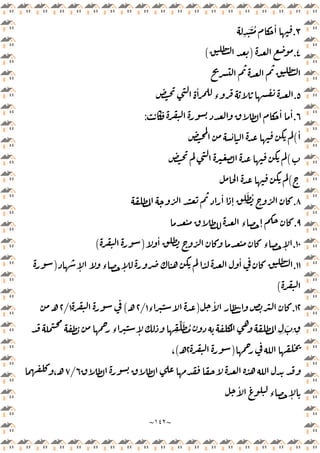 ٣.فيها أحكام مُبَدَّلة
٤.موضع العدة (بعد التطليق)
التطليق ثم العدة ثم التسريح
٥.العدة نفسها ثلاثة قروء للمرأة التي تحيض
٦.أما أحكام الطلاق والعدد بسورة البقرة فكانت:
أ)لم يكن فيها عدة اليائسة من المحيض
ب)لم يكن فيها عدة الصغيرة التي لم تحيض
ج)لم يكن فيها عدة الحامل
٨.كان الزوج يُطَلِّق إذا أراد ثم تعتد الزوجة المطلقة
٩.كان حكم إحصاء العدة للطلاق منعدما
١٠.الإحصاء كان منعدما وكان الزوج يطلق أولا (سورة البقرة)
١١.التطليق كان في أول العدة لذا لم يكن هناك ضرورة للإحصاء ولا الإشهاد(سورة
البقرة)
١٢.كان التربص وانتظار الأجل(عدة الاستبراء٢/١هـ) في سورة البقرة٢/١هـ من
قِبَلِ المطلقة وهي المكلفة به دون مُطَلِّقها وذلك لإستبراء رحمها من نطفة محتملة قد
يخلقها الله في رحمها(سورة البقرة٢هـ)،
وقد بدل الله هذه العدة لاحقا فقدمها على الطلاق بسورة الطلاق٧/٦هـ،وكلفهما
بالإحصاء لبلوغ الأجل
~١٤٢~